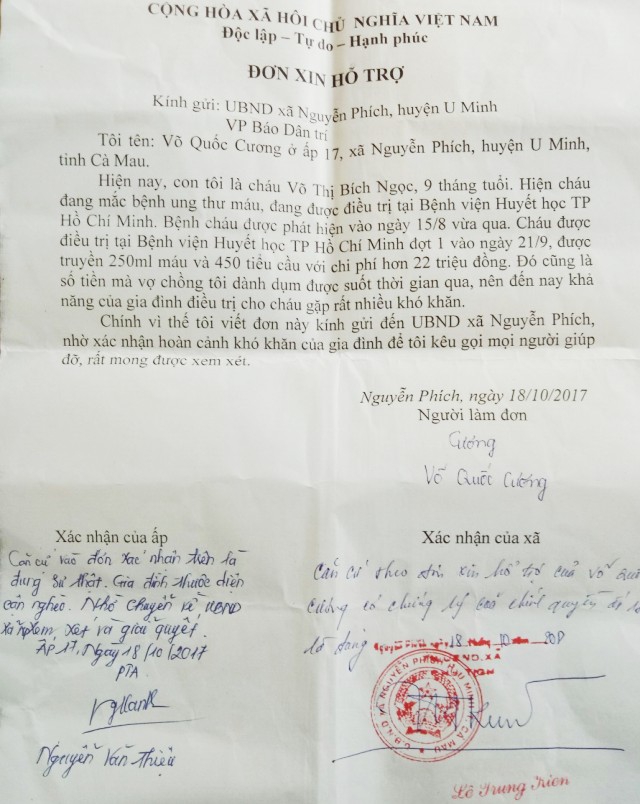 CỘNG HÒA XÃ HỘI CHỦ NGHĨA VIỆT NAM
Độc lập – Tự do – Hạnh phúc
ĐƠN XIN HỖ TRỢ
Kính gửi: UBND xã Nguyễn Phích, huyện U Minh
VP Báo Dân trí
Tôi tên: Võ Quốc Cương ở ấp 17, xã Nguyễn Phích, huyện U Minh,
tỉnh Cà Mau.
Hiện nay, con tôi là cháu Võ Thị Bích Ngọc, 9 tháng tuổi. Hiện cháu
đang mắc bệnh ung thư máu, đang được điều trị tại Bệnh viện Huyết học TP
Hồ Chí Minh. Bệnh cháu được phát hiện vào ngày 15/8 vừa qua. Cháu được
điều trị tại Bệnh viện Huyết học TP Hồ Chí Minh đợt 1 vào ngày 21/9, được
truyền 250ml máu và 450 tiểu cầu với chi phí hơn 22 triệu đồng. Đó cũng là
số tiền mà vợ chồng tôi dành dụm được suốt thời gian qua, nên đến nay khả
năng của gia đình điều trị cho cháu gặp rất nhiều khó khăn.
Chính vì thế tôi viết đơn này kính gửi đến UBND xã Nguyễn Phích,
nhờ xác nhận hoàn cảnh khó khăn của gia đình để tôi kêu gọi mọi người giúp
đỡ, rất mong được xem xét.
Nguyễn Phích, ngày 18/10/2017
Người làm đơn
Cương
Võ Quốc Cương
Xác nhận của ấp
Căn cứ vào đơn xác nhân trên là
đúng sự thật. Gia đình thuộc diện
cận nghèo. Nhờ chuyển về UBND
xã xem xét và giải quyết.
ẤP 17, Ngày 18/10/2017
PTA
Nguyễn Văn Thiệu
Xác nhận của xã
Căn cứ theo đơn xin hổ trợ của võ Quốc
cương
18 10
U.B.N.D XÃ NGUYỄN PHÍCH H.U MINH T. CÀ MAU
Lê Trung Kiên